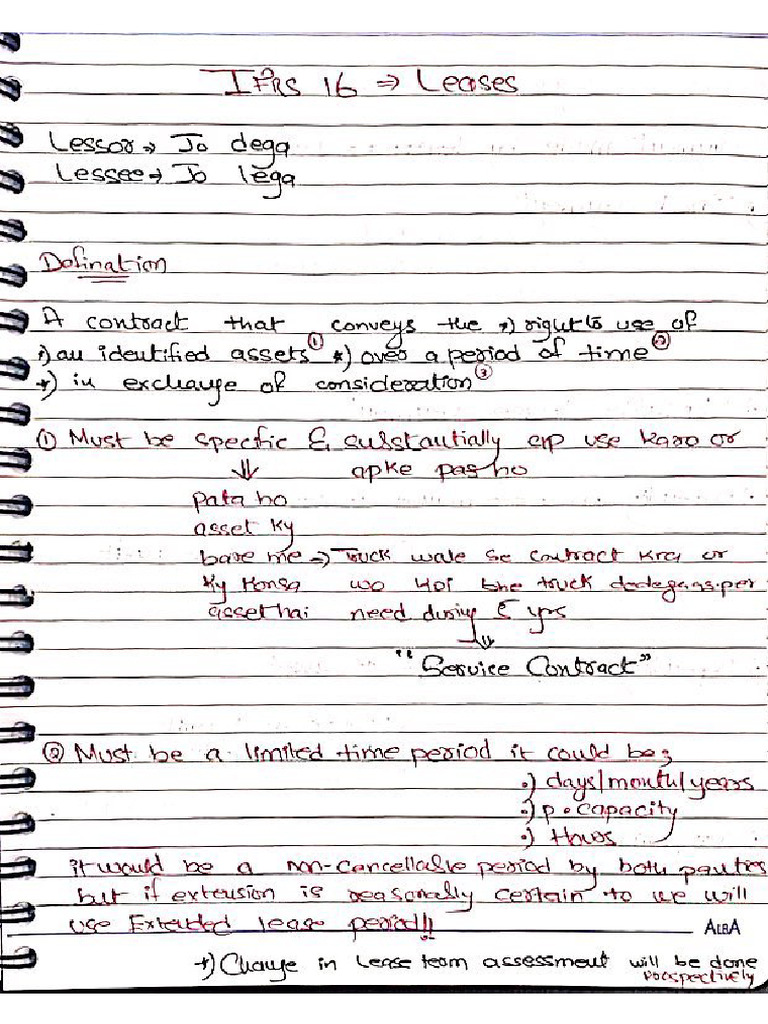 IFRS 16 ⇒ Leases
Lessor → Jo dega
Lessee → Jo lega
Defination
A contract that conveys the •) right to use of
•) an identified assets ① •) over a period of time ②
•) in exchange of consideration ③
① Must be specific & substantially ap use karo or
⇓ apke pas ho
pata ho
asset ky
bare me → Truck wale se contract kra or
ky Konsa wo koi bhe truck dedega as per
asset hai need during 5 yrs
"Service Contract"
② Must be a limited time period it could be;
•) days/month/years
•) P. capacity
•) Hours
it would be a non-cancellable period by both parties
but if extension is reasonally certain to we will
use Extended lease period!!
ALBA
•) Change in Lease team assessment will be done
rocespectively